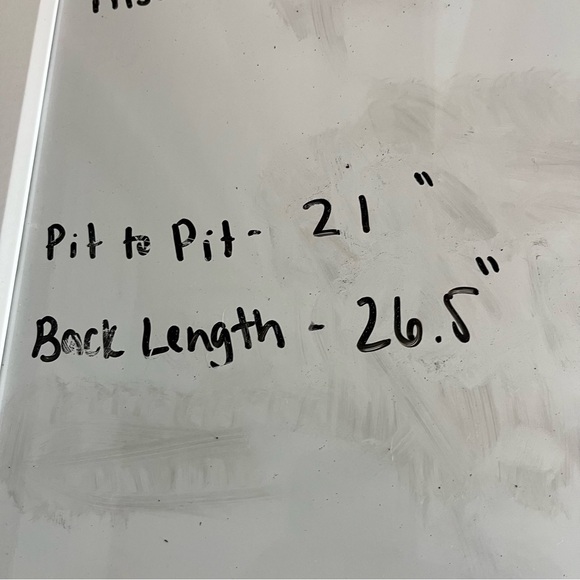 Pit to Pit- 21"
Back Length - 26.5"